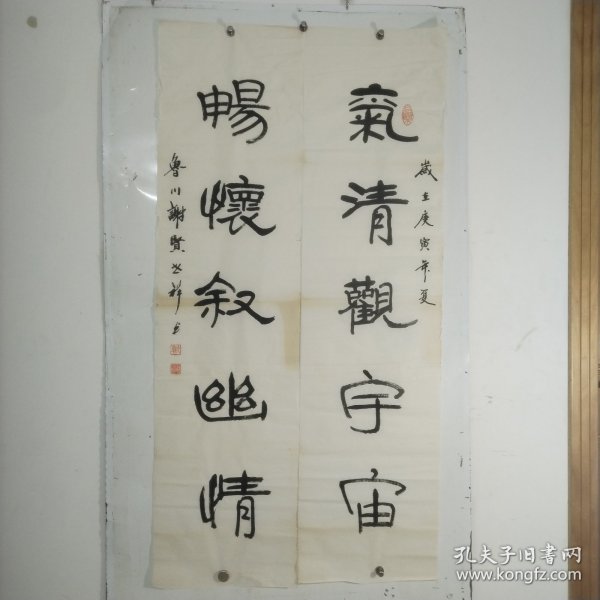 歲在庚寅年夏
氣清觀宇宙
暢懷叙幽情
魯川謝賢
孔夫子旧书网
www.kongfz.com